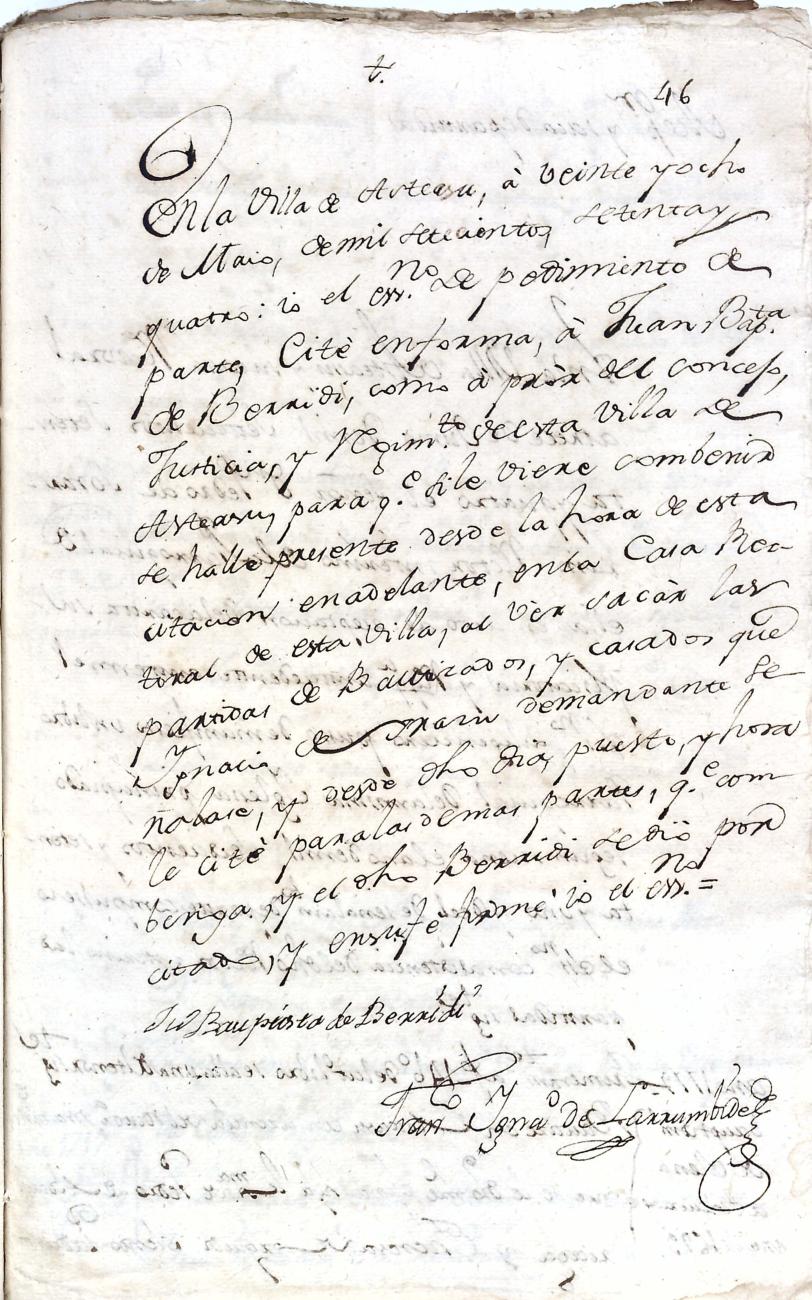 t.
46
En la Villa de Asteasu, à veinte y ocho
de Maio, de mil setecientos, setenta y
quatro: io el ess.no de pedimiento de
parte, Citè en forma, à Juan Bap.ta
de Berridi, como à pròr del concejo,
Justicia, y Regim.to de esta Villa de
Asteasu, para q.e si le viere combenir
se halle presente desde la hora de esta
citacion en adelante, en la Casa Rec-
toral de esta Villa, al vèr sacàr las
partidas de Bautizados, y casados que
Ygnacio de Irazu demandante se
ñalase, y desde dho dia, puèsto, y hora
le citè para las demas partes, q.e com
benga, y el dho Berridi se diò por
citado, y en su fè firmè io el ess.no =
Ju.o Baupista de Berridi
Fran.co Ygna.o de Larrumbide